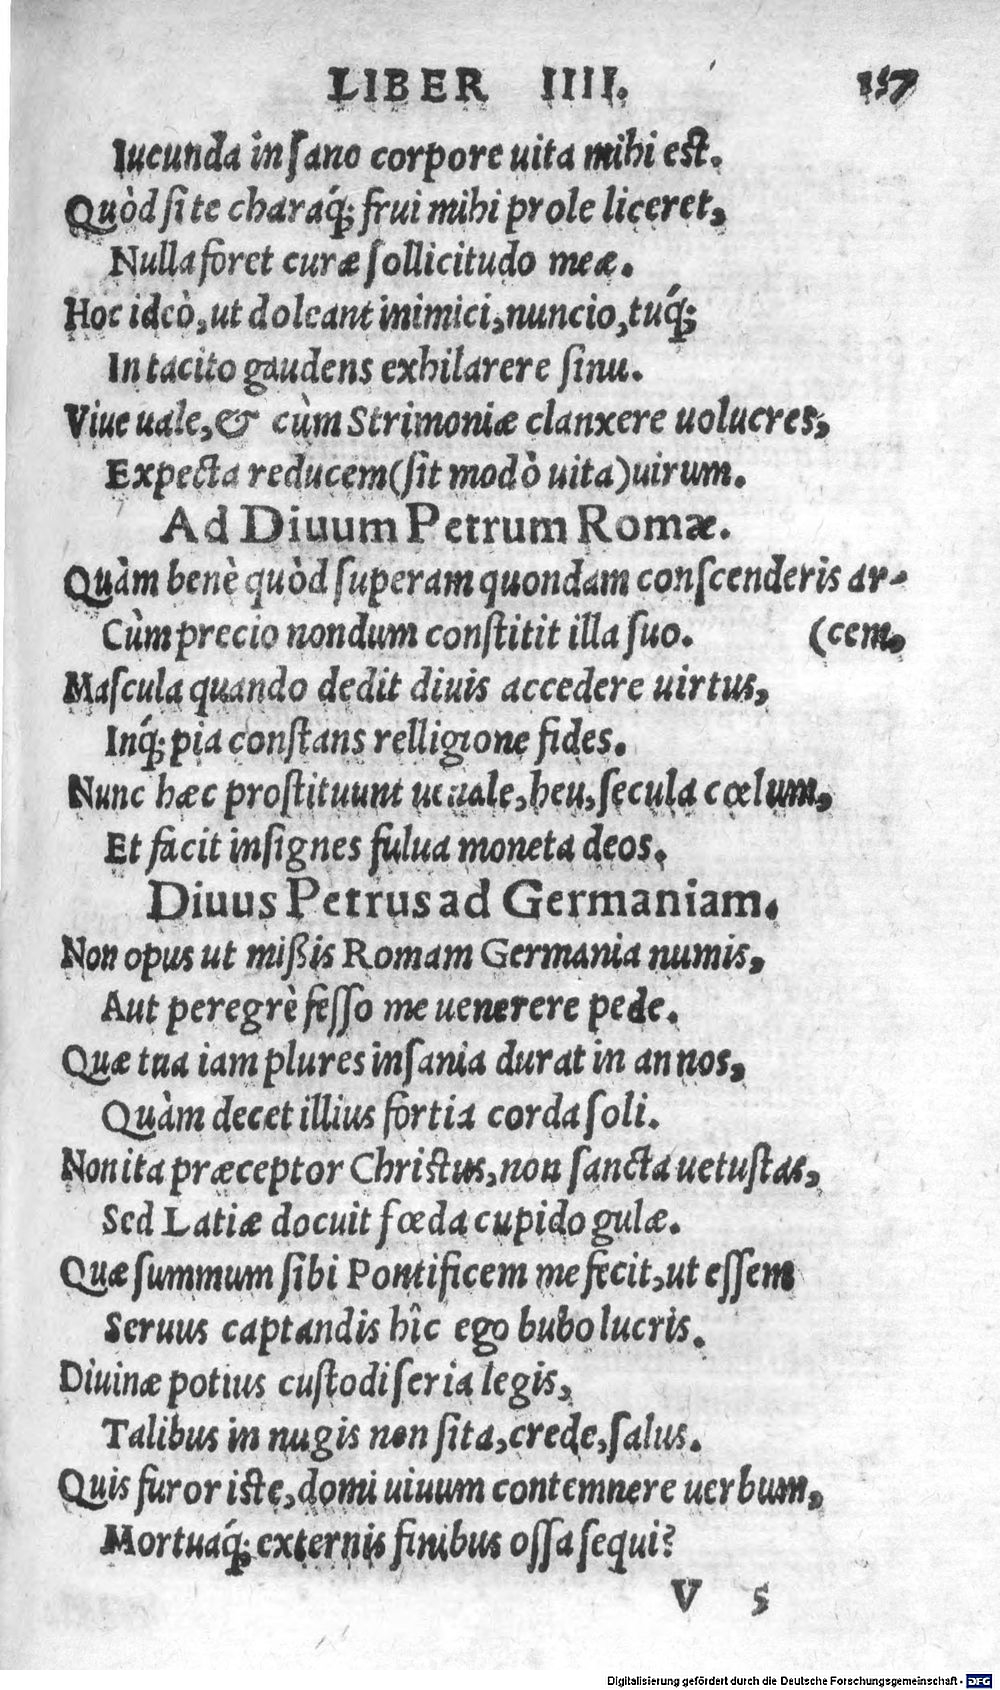 LIBER IIII. 157
Iucunda in ſano corpore uita mihi est.
Quòd ſi te charaq́; frui mihi prole liceret,
Nulla foret curæ ſollicitudo meæ.
Hoc ideò, ut doleant inimici, nuncio, tuq́;
In tacito gaudens exhilarere ſinu.
Viue uale, & cùm Strimoniæ clanxere uolucres,
Expecta reducem (ſit modò uita) uirum.
Ad Diuum Petrum Romæ.
Quàm benè quòd ſuperam quondam conſcenderis ar-
Cùm precio nondum conſtitit illa ſuo. (cem,
Maſcula quando dedit diuis accedere uirtus,
Inq́; pia conſtans relligione fides.
Nunc hæc proſtituunt uenale, heu, ſecula cœlum,
Et facit inſignes fulua moneta deos.
Diuus Petrus ad Germaniam.
Non opus ut miſsis Romam Germania numis,
Aut peregrè feſſo me uenerere pede.
Quæ tua iam plures inſania durat in annos,
Quàm decet illius fortia corda ſoli.
Non ita præceptor Christus, non ſancta uetuſtas,
Sed Latiæ docuit fœda cupido gulæ.
Quæ ſummum ſibi Pontificem me fecit, ut eſſem
Seruus captandis hîc ego bubo lucris.
Diuinæ potius cuſtodi ſeria legis,
Talibus in nugis non ſita, crede, ſalus.
Quis furor iste, domi uiuum contemnere uerbum,
Mortuaq́; externis finibus oſſa ſequi?
V 5
Digitalisierung gefördert durch die Deutsche Forschungsgemeinschaft - DFG